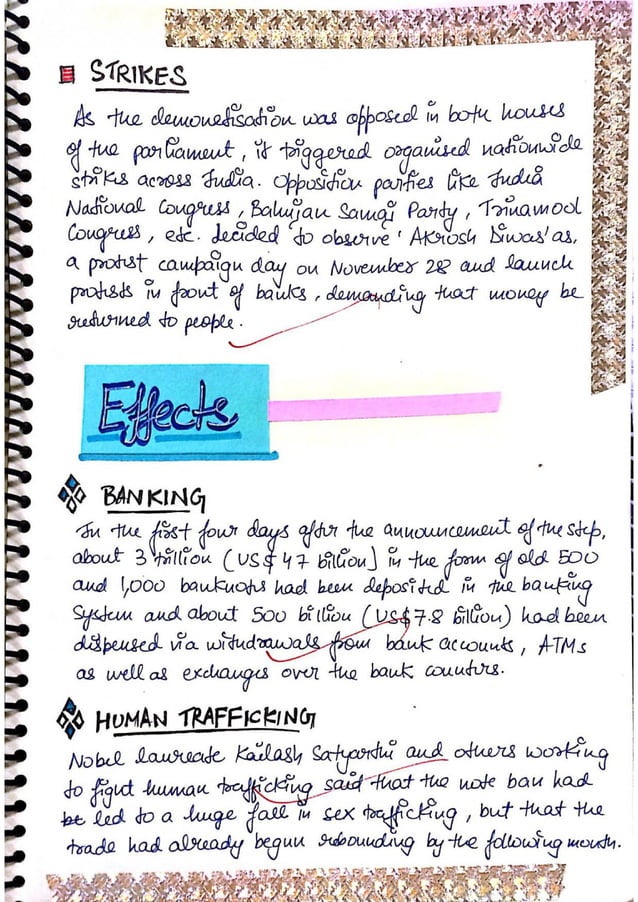 STRIKES
As the demonetisation was opposed in both houses
of the parliament, it triggered organised nationwide
strikes across India. Opposition parties like India
National Congress, Bahujan Samaj Party, Trinamool
Congress, etc. decided to observe 'Akrosh Diwas' as,
a protest campaign day on November 28 and launch
protests in front of banks, demanding that money be
returned to people.
Effects
BANKING
In the first four days after the announcement of the step,
about 3 trillion (US$ 47 billion) in the form of old 500
and 1,000 banknotes had been deposited in the banking
system and about 500 billion (US$7.8 billion) had been
dispensed via withdrawals from bank accounts, ATMs
as well as exchanges over the bank counters.
HUMAN TRAFFICKING
Nobel laureate Kailash Satyarthi and others working
to fight human trafficking said that the note ban had
led to a huge fall in sex trafficking, but that the
trade had already begun rebounding by the following month.